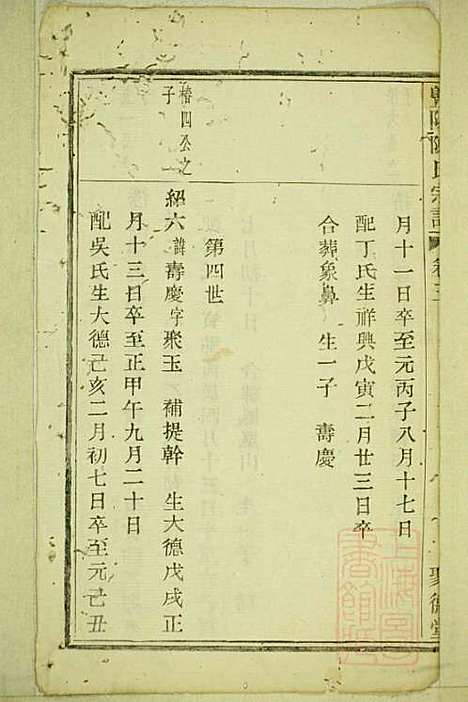 陽陳氏宗譜 卷三
聚德堂
月十一日卒至元丙子八月十七日
配丁氏生祥興戊寅二月廿三日卒
合葬象鼻 生一子 壽慶
第四世
椿四公之子
紹六諱壽慶字聚玉 補提幹 生大德戊戌正
月十三日卒至正甲午九月二十日
配吳氏生大德己亥二月初七日卒至元己丑
上海圖書館藏